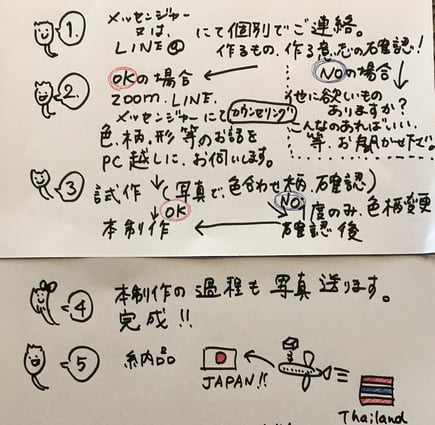 1. メッセンジャー
又は、
LINE@
にて個別でご連絡。
作るもの、作る意志の確認!
OKの場合
NOの場合
2. ZOOM. LINE.
メッセンジャーにて カウンセリング
色、柄、形 等のお話を
PC越しに、お伺いします。
他に欲しいもの
ありますか?
こんなのあればいい
等、お聞かせ下さい。
3 試作 (写真で、色合わせ 柄、確認)
OK
NO
1度のみ、色柄変更
本制作
確認後
4 本制作の過程も写真送ります。
完成!!
5 納品
JAPAN!!
Thailand